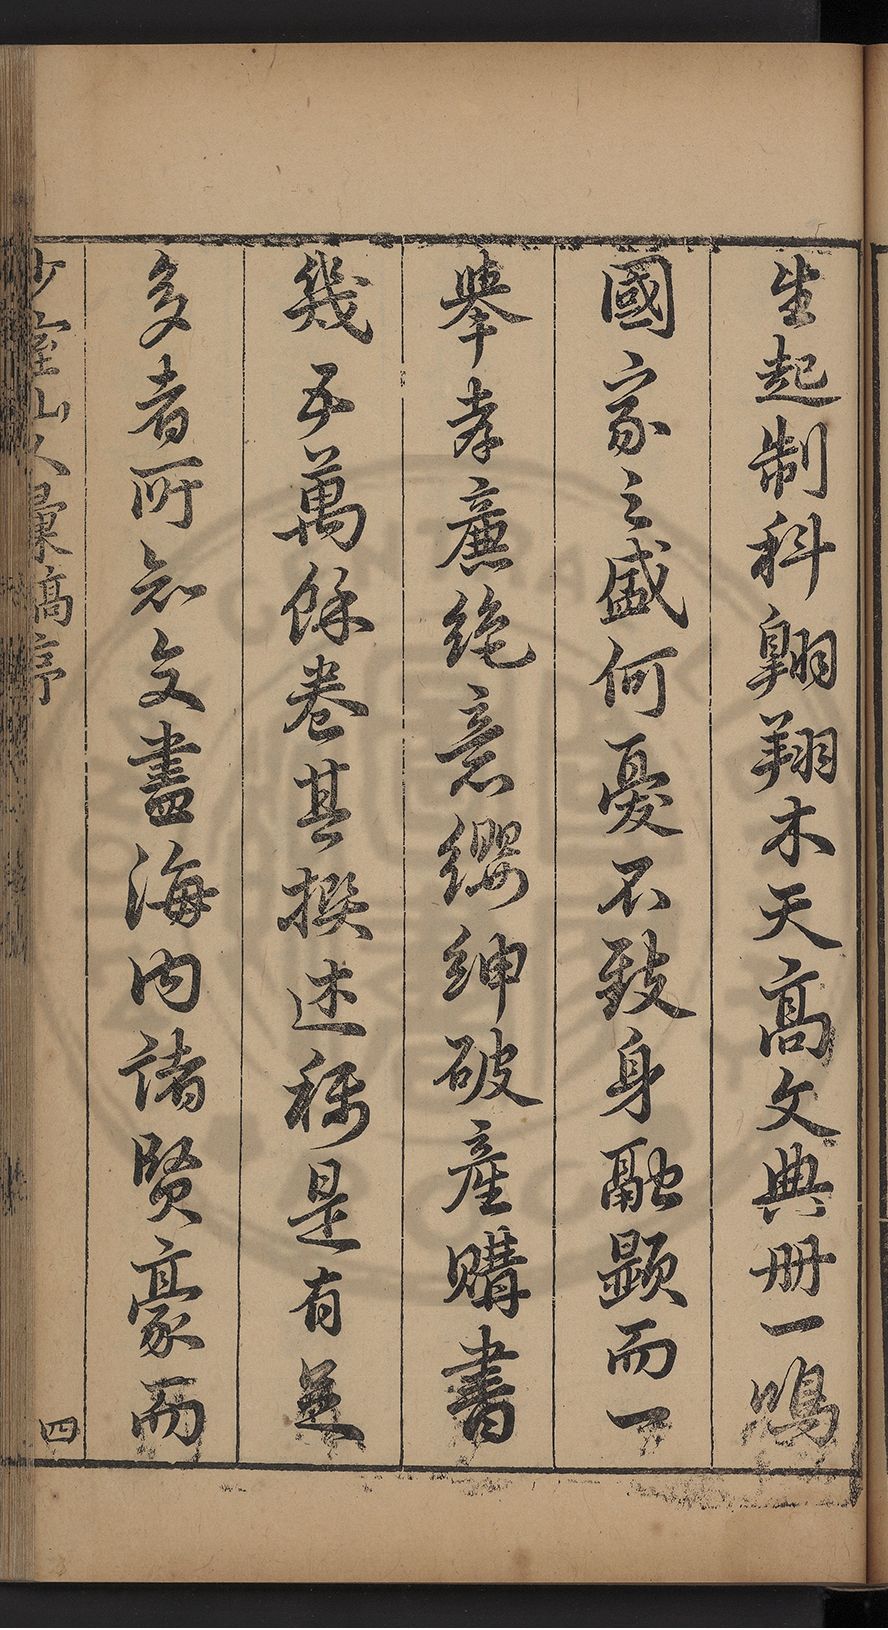 生起制科翱翔木天高文典册一鳴
國家之盛何憂不致身融顯而一
舉孝廉絶意纓紳破産購書
幾五萬餘卷其撰述稱是有益
多者所知交盡海内諸賢豪而
少室山人彙稿序
四